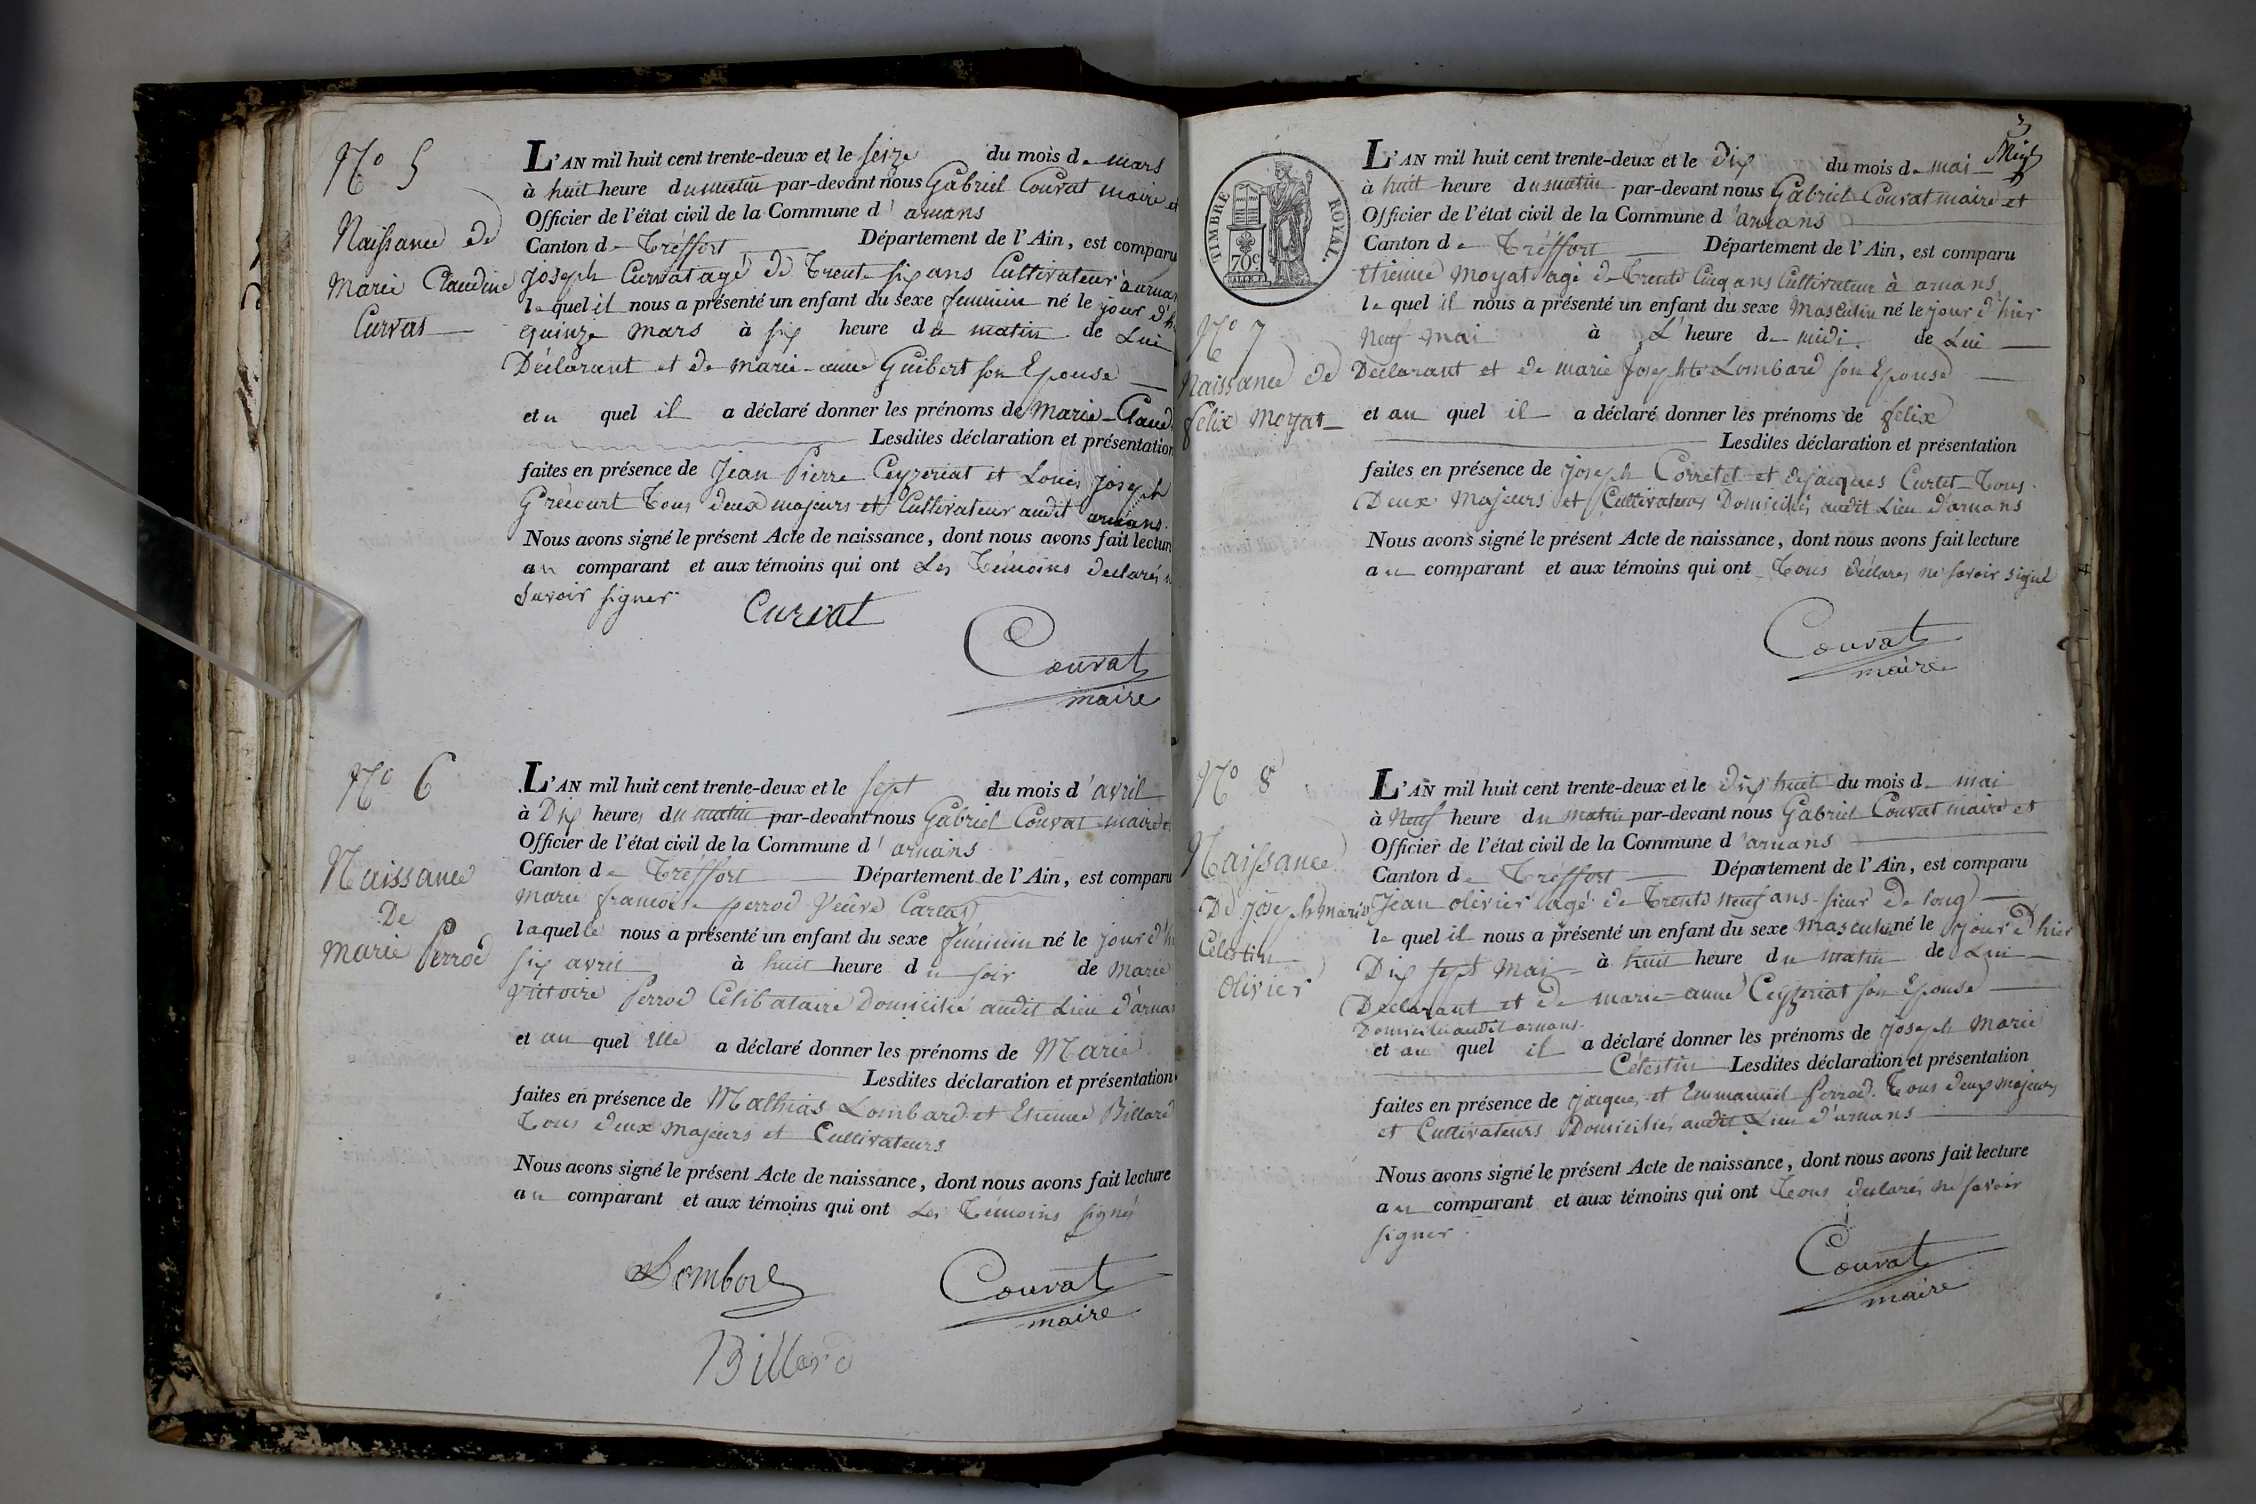 No 5
Naissance de
Marie Claudine
Curvat
L'AN mil huit cent trente-deux et le seize du mois de mars
à huit heure du matin par-devant nous Gabriel Couvat maire et
Officier de l'état civil de la Commune d'arnans
Canton de Tréffort Département de l'Ain, est comparu
joseph Curvat agé de Trente six ans Cultivateur à arnan
lequel il nous a présenté un enfant du sexe feminin né le jour d'h
quinze mars à six heure du matin de Lui
Déclarant et de marie-anne Guibert son Epouse
et u quel il a déclaré donner les prénoms de Marie-Claud
Lesdites déclaration et présentation
faites en présence de Jean Pierre Ceyzeriat et Louis joseph
Grécourt Tous deux majeurs et Cultivateur audit arnans.
Nous avons signé le présent Acte de naissance, dont nous avons fait lecture
au comparant et aux témoins qui ont Les Témoins declarés n
Savoir signer
Curvat
Couvat
maire
No 6
Naissance
De
Marie Perrod
L'AN mil huit cent trente-deux et le sept du mois d'avril
à Dix heures du matin par-devant nous Gabriel Couvat maire et
Officier de l'état civil de la Commune d'arnans
Canton de Tréffort Département de l'Ain, est comparu
Marie francoise perrod Veuve
laquelle nous a présenté un enfant du sexe féminin né le jour d'h
six avril à huit heure du soir de Marie
Victoire Perrod Célibataire Domicilié audit Lieu d'arnan
et au quel elle a déclaré donner les prénoms de Marie
Lesdites déclaration et présentation
faites en présence de Mathias Lombard et Etienne Billard
Tous deux Majeurs et Cultivateurs
Nous avons signé le présent Acte de naissance, dont nous avons fait lecture
au comparant et aux témoins qui ont Les Témoins signés
Lombard
Couvat
maire
Billard
3
TIMBRE ROYAL.
70c
No 7
Naissance de
felix Moyat
L'AN mil huit cent trente-deux et le dix du mois de mai
à huit heure du matin par-devant nous Gabriel Couvat maire et
Officier de l'état civil de la Commune d'arnans
Canton de Tréffort Département de l'Ain, est comparu
etienne Moyat agé de Trente Cinq ans Cultivateur à arnans
lequel il nous a présenté un enfant du sexe Masculin né le jour d'hier
Neuf mai à L'heure de midi de Lui
Déclarant et de marie josephte Lombard son Epouse
et au quel il a déclaré donner les prénoms de felix
Lesdites déclaration et présentation
faites en présence de joseph Corretet et de jacques Curtet Tous
Deux Majeurs et Cultivateurs Domiciliés audit Lieu d'arnans
Nous avons signé le présent Acte de naissance, dont nous avons fait lecture
au comparant et aux témoins qui ont Tous déclarés ne savoir signé
Couvat
maire
No 8
Naissance
De joseph marie
Célestin
Olivier
L'AN mil huit cent trente-deux et le dix huit du mois de mai
à Neuf heure du matin par-devant nous Gabriel Couvat maire et
Officier de l'état civil de la Commune d'arnans
Canton de Tréffort Département de l'Ain, est comparu
Jean olivier agé de Trente neuf ans sieur de long
lequel il nous a présenté un enfant du sexe Masculin né le jour d'hier
Dix sept Mai à huit heure du matin de Lui
Déclarant et de marie-anne Ceyzeriat son Epouse
Domicilié audit arnans.
et au quel il a déclaré donner les prénoms de joseph Marie
Célestin Lesdites déclaration et présentation
faites en présence de jacques et Emmanuel Perrod Tous deux majeurs
et Cultivateurs Domiciliés audit Lieu d'arnans
Nous avons signé le présent Acte de naissance, dont nous avons fait lecture
au comparant et aux témoins qui ont Tous déclarés ne savoir
signer.
Couvat
maire